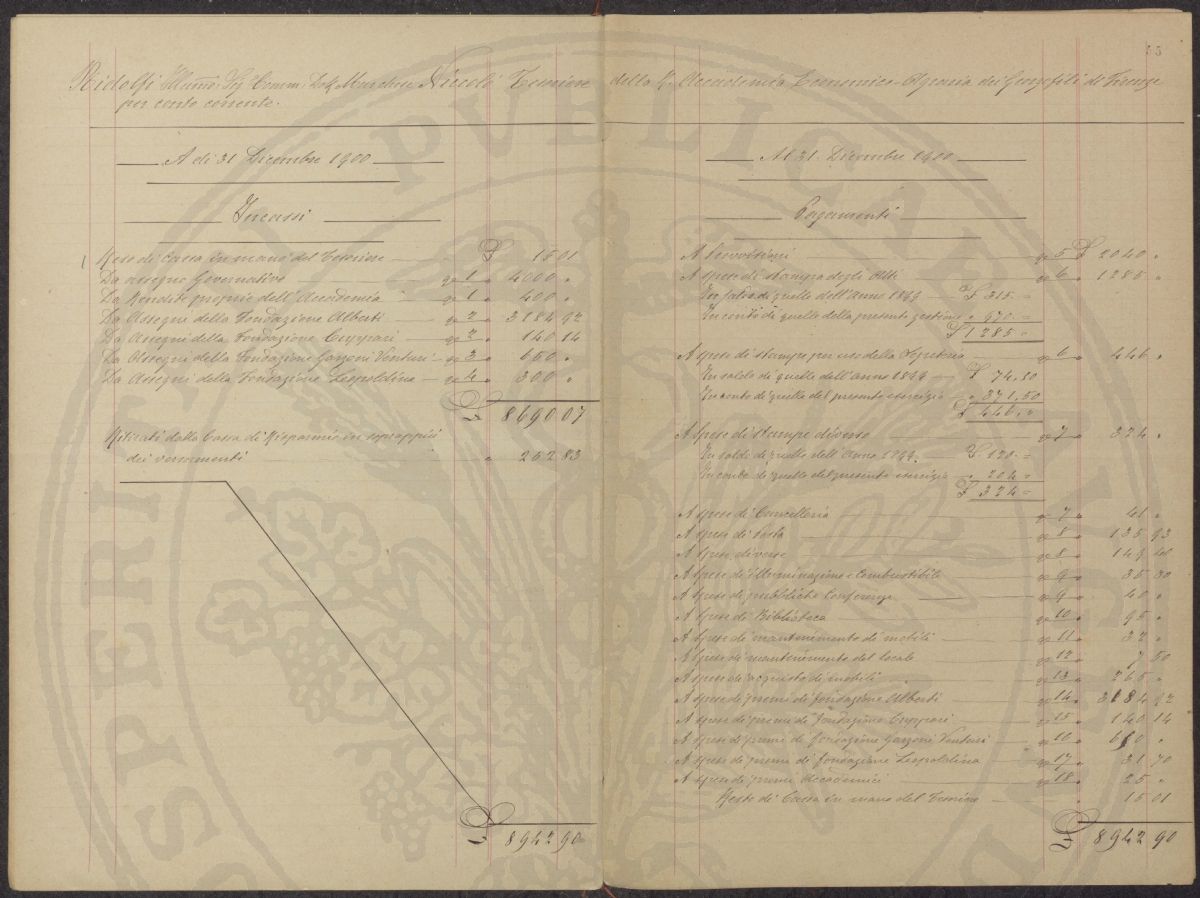 55
Ridolfi Illmo. Sig. Comm. Dott. Marchese Niccolò Tesoriere della R. Accademia Economico-Agraria dei Georgofili di Firenze
per conto corrente.
A dì 31 Dicembre 1900
Incassi
Resto di Cassa in mano del Tesoriere £ 15 01
Da assegno Governativo 1 " 4000 "
Da Rendite proprie dell'Accademia 1 " 400 "
Da Assegni della Fondazione Alberti 2 " 3184 92
Da Assegni della Fondazione Cuppari 2 " 140 14
Da Assegni della Fondazione Garzoni Venturi 3 " 650 "
Da Assegni della Fondazione Leopoldina 4 " 300 "
£ 8690 07
Ritirati dalla Cassa di Risparmio in soprappiù
dei versamenti " 252 83
£ 8942 90
Al 31. Dicembre 1900
Pagamenti
A Provvisioni 5 £ 2040 "
A spese di stampa degli Atti 6 " 1285 "
In saldo di quelle dell'Anno 1899 £ 315 =
In conto di quelle della presente gestione " 970 =
£ 1285 =
A spese di stampe per uso della Segreteria 6 " 446 "
In saldo di quelle dell'anno 1899 £ 74,50
In conto di quelle del presente esercizio " 371,50
£ 446, =
A spese di stampe diverse 7 " 324 "
In saldo di quelle dell'Anno 1899. £ 120 =
In conto di quelle del presente esercizio " 204 =
£ 324 =
A spese di Cancelleria 7 " 41 "
A spese di Posta 8 " 135 93
A spese diverse 8 " 149
A spese d'illuminazione e Combustibile 9 " 35 30
A spese di pubbliche Conferenze 9 " 40 "
A spese di Biblioteca 10 " 95 "
A spese di mantenimento di mobili 11 " 32 "
A spese di mantenimento del locale 12 " 7 50
A spese di acquisto di mobili 13 " 265 "
A spese di premi di fondazione Alberti 14 " 3184 92
A spese di premi di fondazione Cuppari 15 " 140 14
A spese di premi di fondazione Garzoni Venturi 16 " 650 "
A spese di premi di fondazione Leopoldina 17 " 31 70
A spese di premi Accademici 18 " 25 "
Resto di Cassa in mano del Tesoriere " 15 01
£ 8942 90